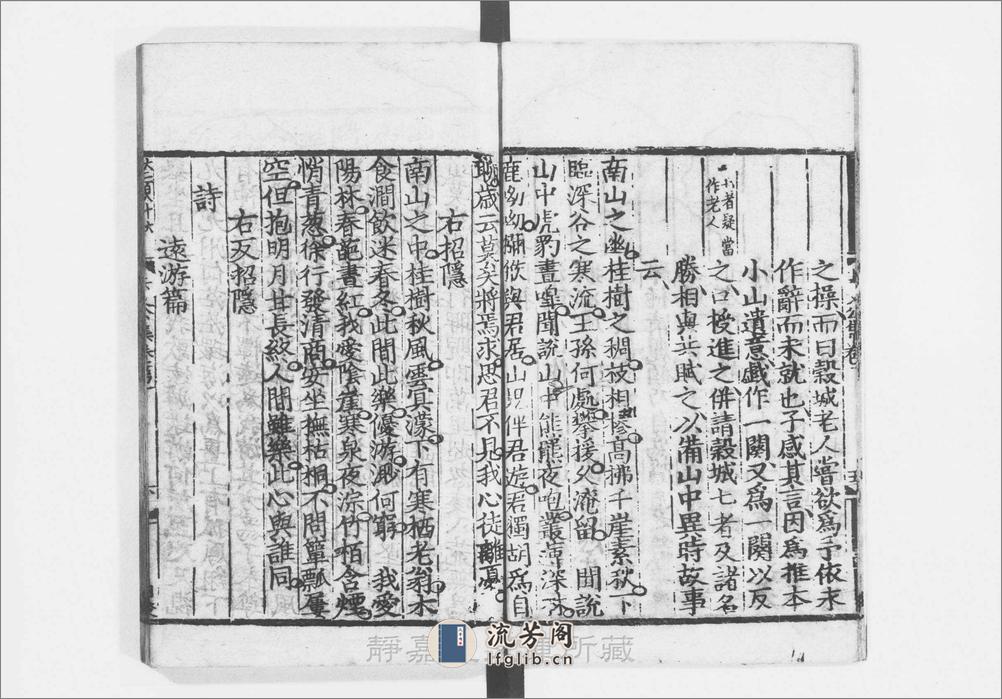 之操而曰穀城老人嘗欲爲予依永
作辭而未就也予感其言因爲推本
小山遺意戲作一闋又爲一闋以反
之口授進之併請穀城七者及諸名
七者疑當
作老人
勝相與共賦之以備山中異時故事
云
南山之幽桂樹之稠枝相樛高拂千崖素秋下
臨深谷之寒流王孫何處攀援久淹留 聞說
山中虎豹晝嘷聞說山中熊羆夜咆叢薄深林
鹿呦呦獼猴與君居山鬼伴君游君獨胡爲自
聊歲云莫矣將焉求思君不見我心徒離憂
右招隱
南山之中桂樹秋風雲冥濛下有寒栖老翁木
食澗飲迷春冬此間此樂優游渺何窮 我愛
陽林春葩晝紅我愛陰崖寒泉夜淙竹栢含煙
悄青葱徐行發清商安坐撫枯桐不問簞瓢屢
空但抱明月甘長終人間雖樂此心與誰同
右反招隱
詩
遠游篇
靜嘉堂文庫所藏
流芳阁
lfglib.cn